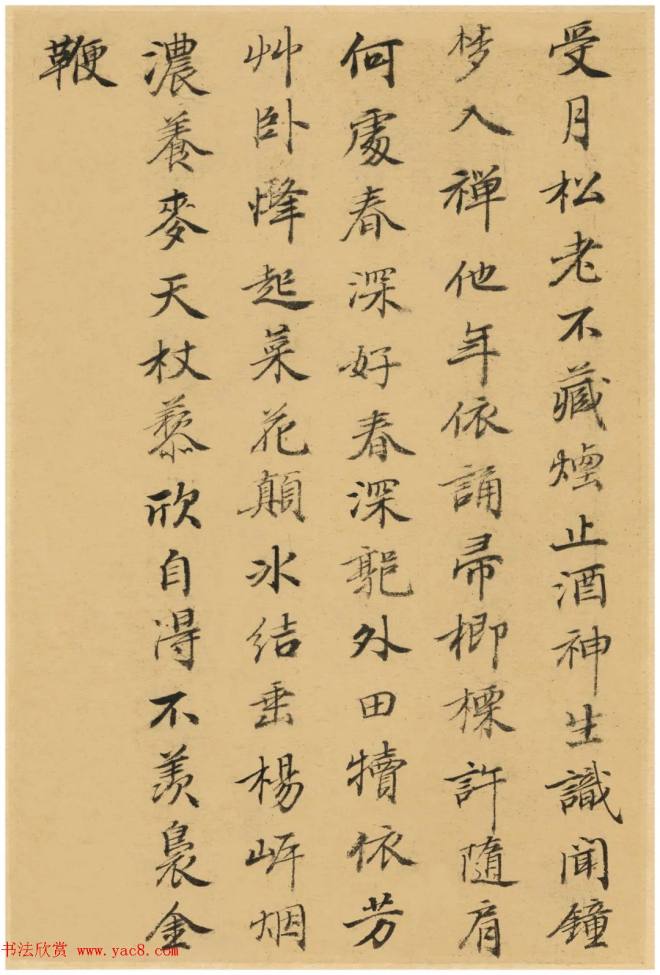 受月松老不藏煙止酒神生識聞鐘
梦入禅他年依誦帚楖檪許隨肩
何處春深好春深郭外田犢依芳
艸卧烽起菜花顛水结垂楊岍烟
濃養麥天杖藜欣自得不羨裊金
鞭
书法欣赏 www.yac8.com